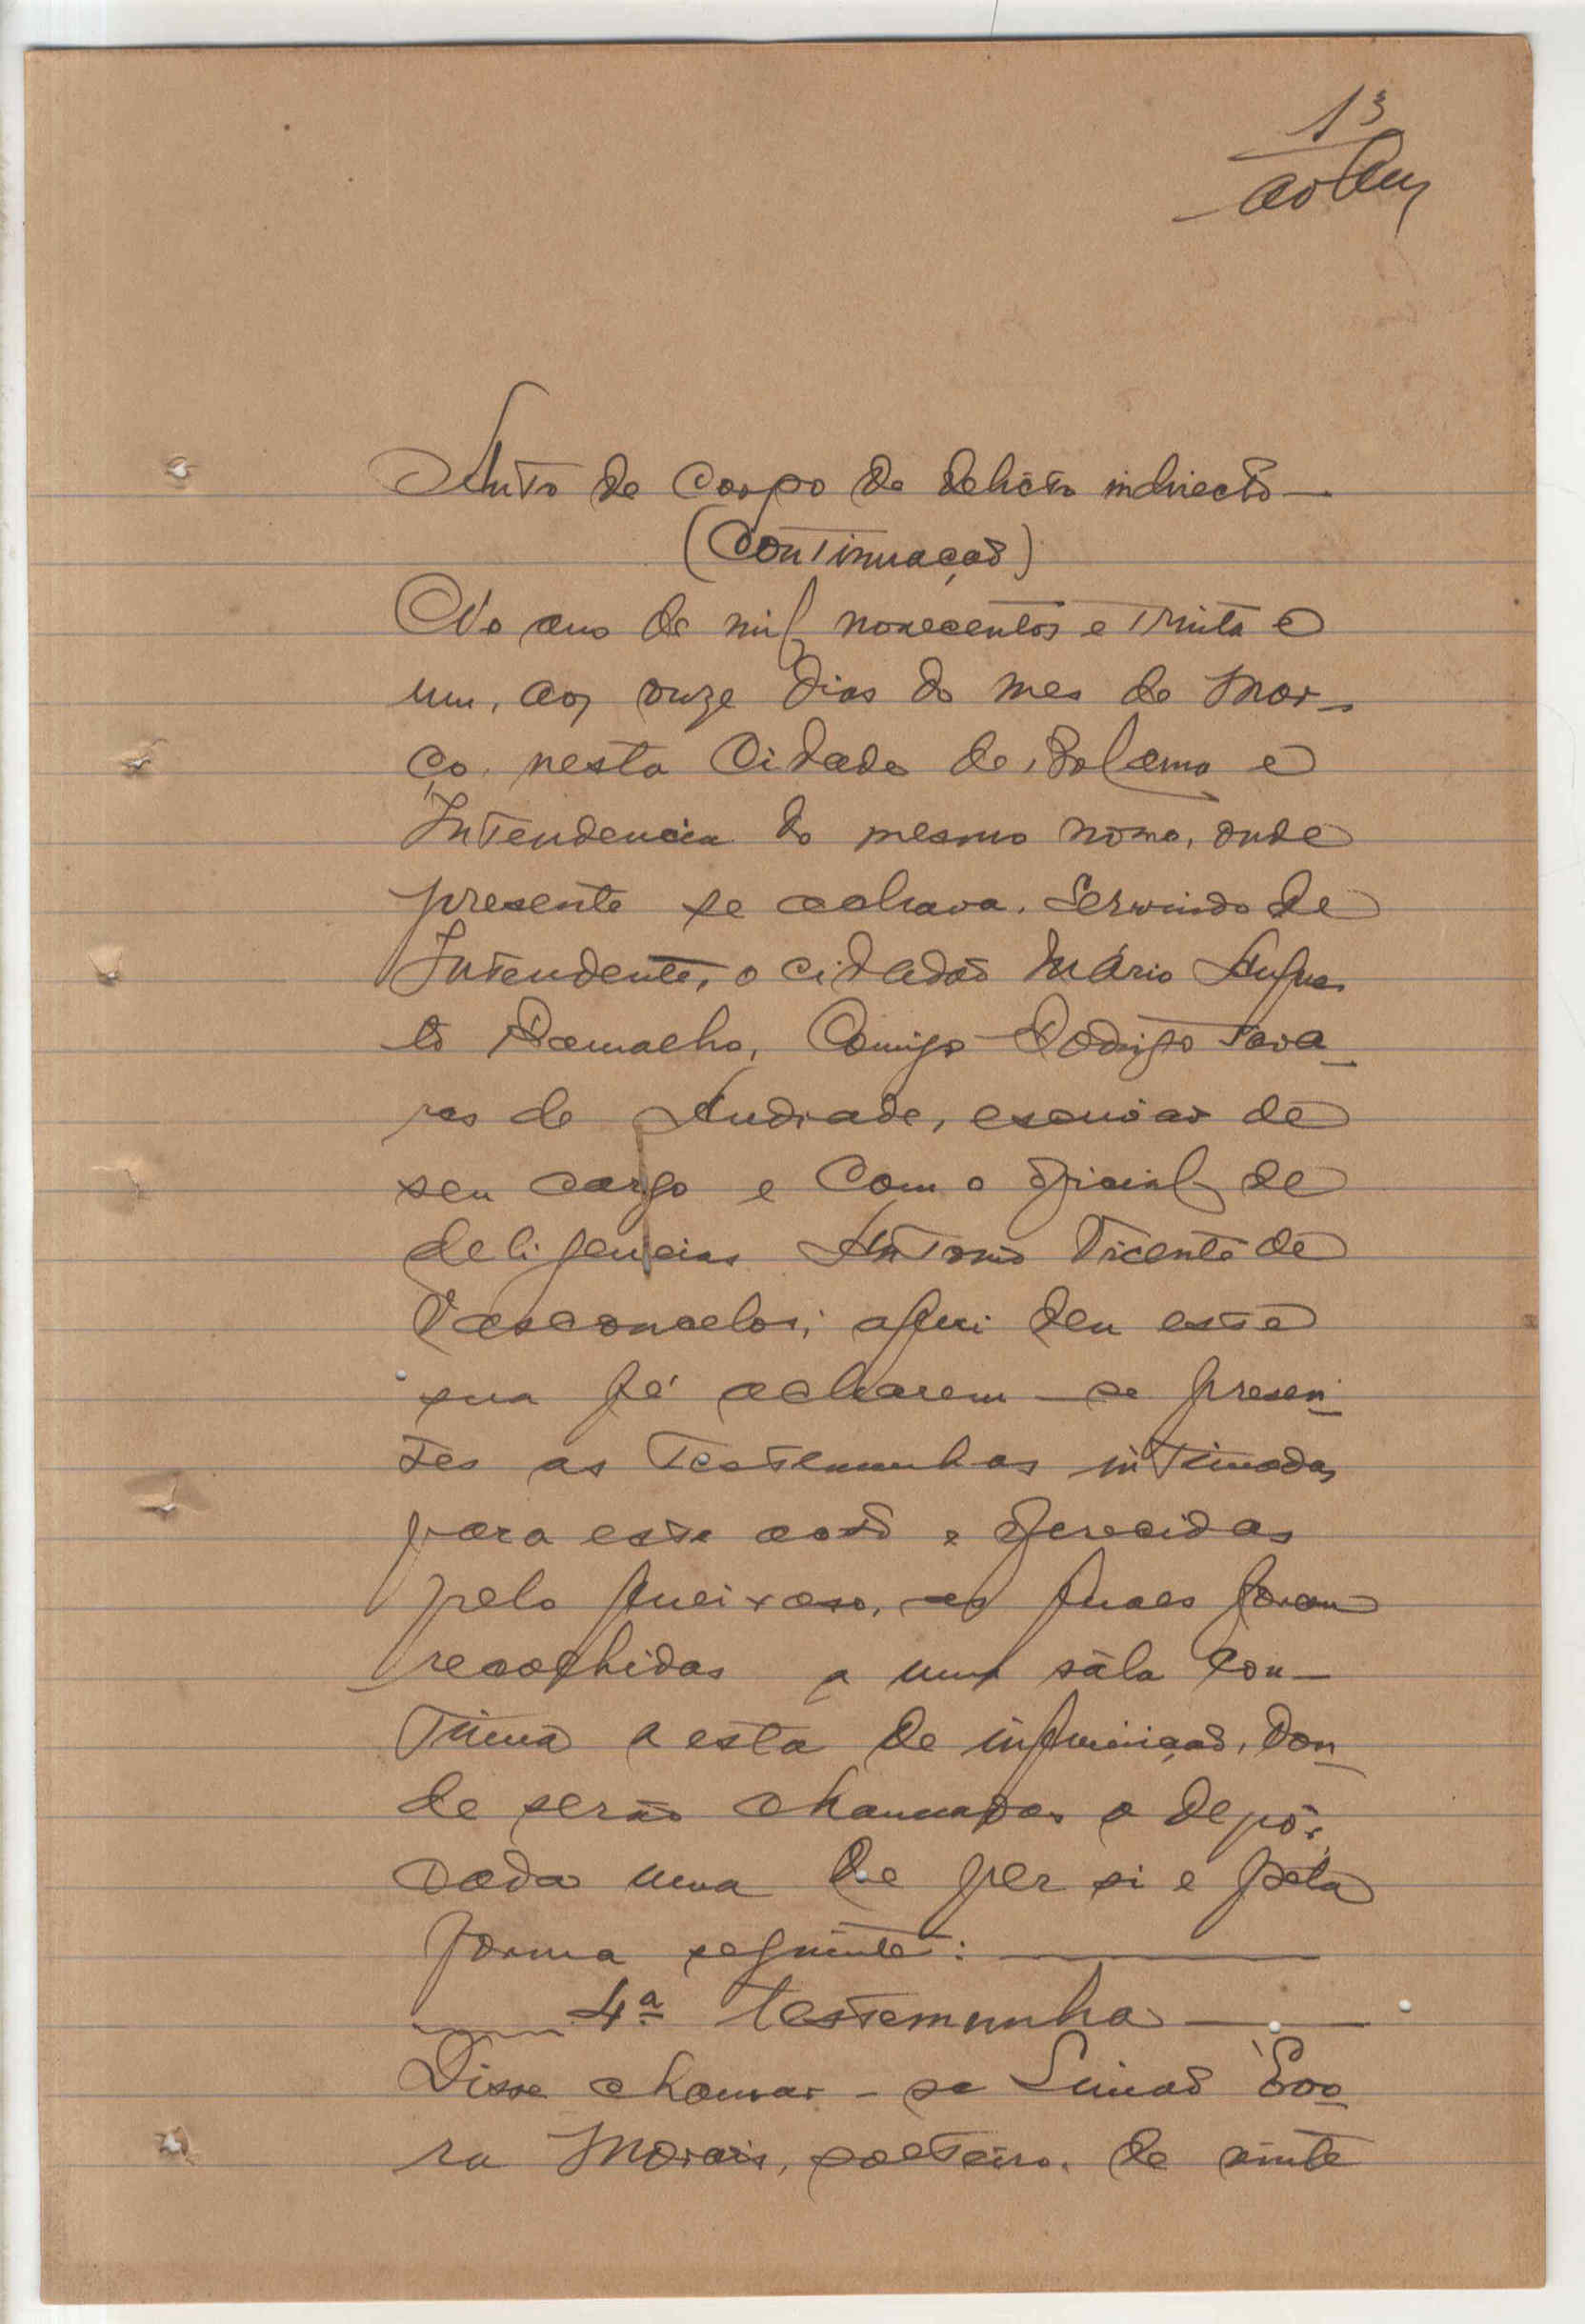 13
Auto de corpo de delicto indirecto —
(Continuação)
No ano de mil novecentos e trinta e
um, aos onze dias do mes de Mar-
ço, nesta Cidade de Bolama e
Intendencia do mesmo nome, onde
presente se achava, servindo de
Intendente, o cidadão Mário Augus
to Ramalho, Comigo Rodrigo Tava-
res de Andrade, escrivão de
seu cargo e com o oficial de
deligencias António Vicente de
Vasconcelos; aqui deu este
sua fé acharem-se presen-
tes as testemunhas intimadas
para este acto e oferecidas
pelo queixoso, as quaes foram
recolhidas a uma sála con-
tinua a esta de inquirição, don-
de serão chamadas a depôr,
cada uma de per si e pela
forma seguinte: —
4ª testemunha —
Disse chamar-se Simão Évo-
ra Morais, solteiro, de vinte